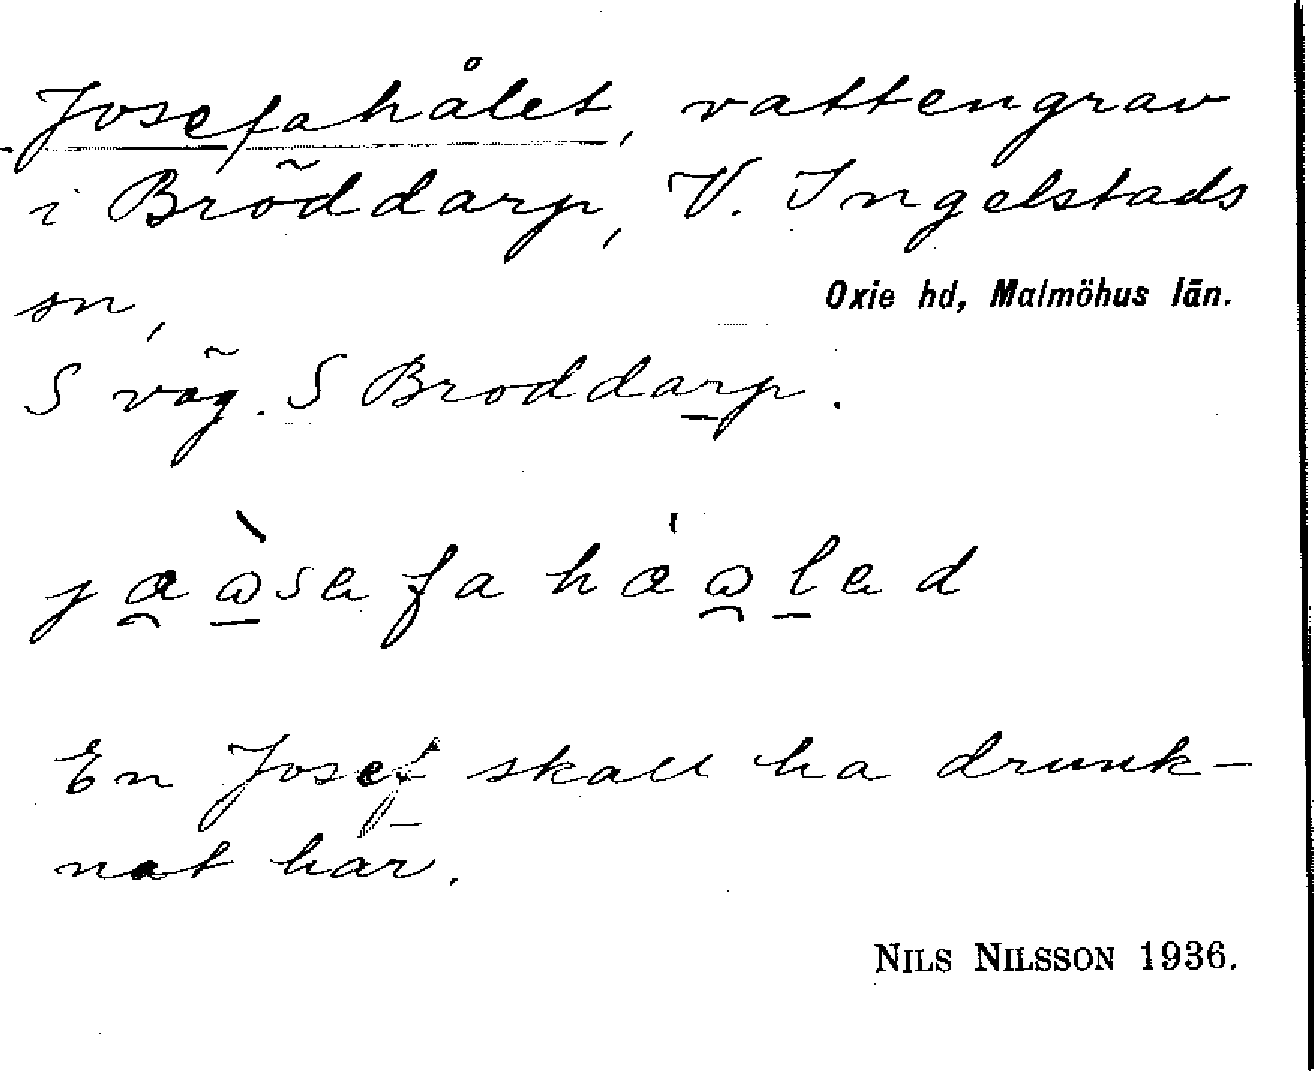 Josefahålet, vattengrav
i Bröddarp, V. Ingelstads
sn,
Oxie hd, Malmöhus län.
S väg. S Broddarp.
En Josef skall ha drunk-
nat här.
NILS NILSSON 1936.